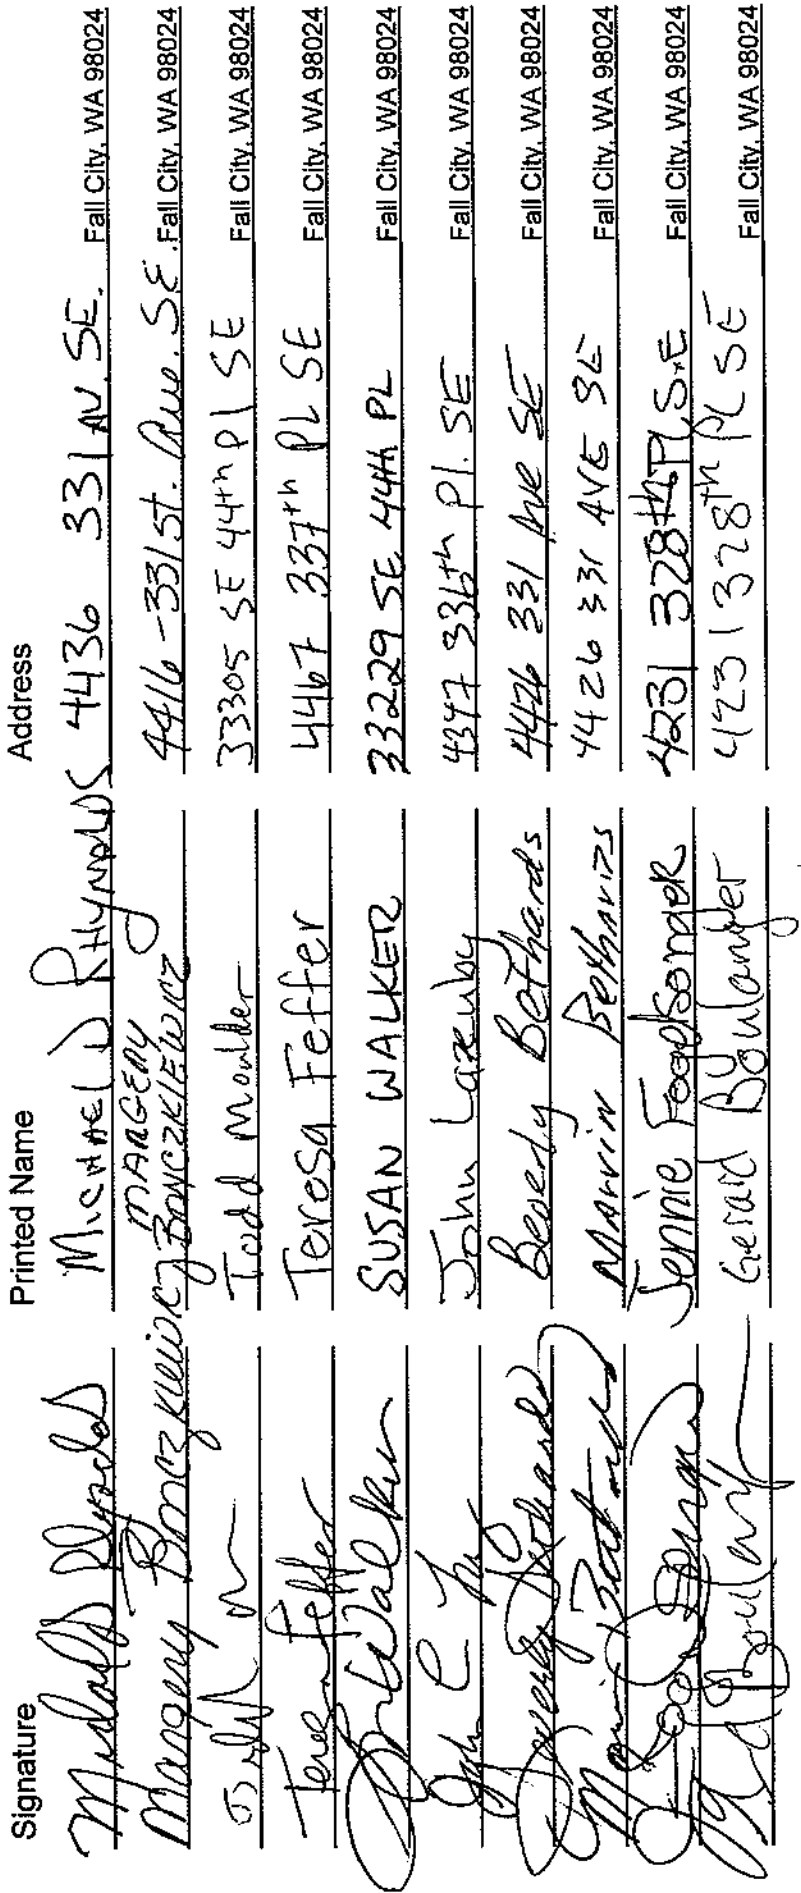 Signature Printed Name Address
Michael D Rhynalds 4436 331 AV. SE. Fall City, WA 98024
Margery Bonczkiewicz MARGERY BONCZKIEWICZ 4416-331st. Ave. SE. Fall City, WA 98024
Todd Moulder 33305 SE 44th Pl SE Fall City, WA 98024
Teresa Feffer Teresa Feffer 4467 337th PL SE Fall City, WA 98024
Walker SUSAN WALKER 33229 SE 44th PL Fall City, WA 98024
John Lazenby 4347 336th Pl. SE Fall City, WA 98024
Beverly Bethards 4426 331 Ave SE Fall City, WA 98024
Marvin Bethards 4426 331 AVE SE Fall City, WA 98024
Jennie 4231 328th Pl S.E Fall City, WA 98024
Gerard Boulanger 4231 328th PL SE Fall City, WA 98024